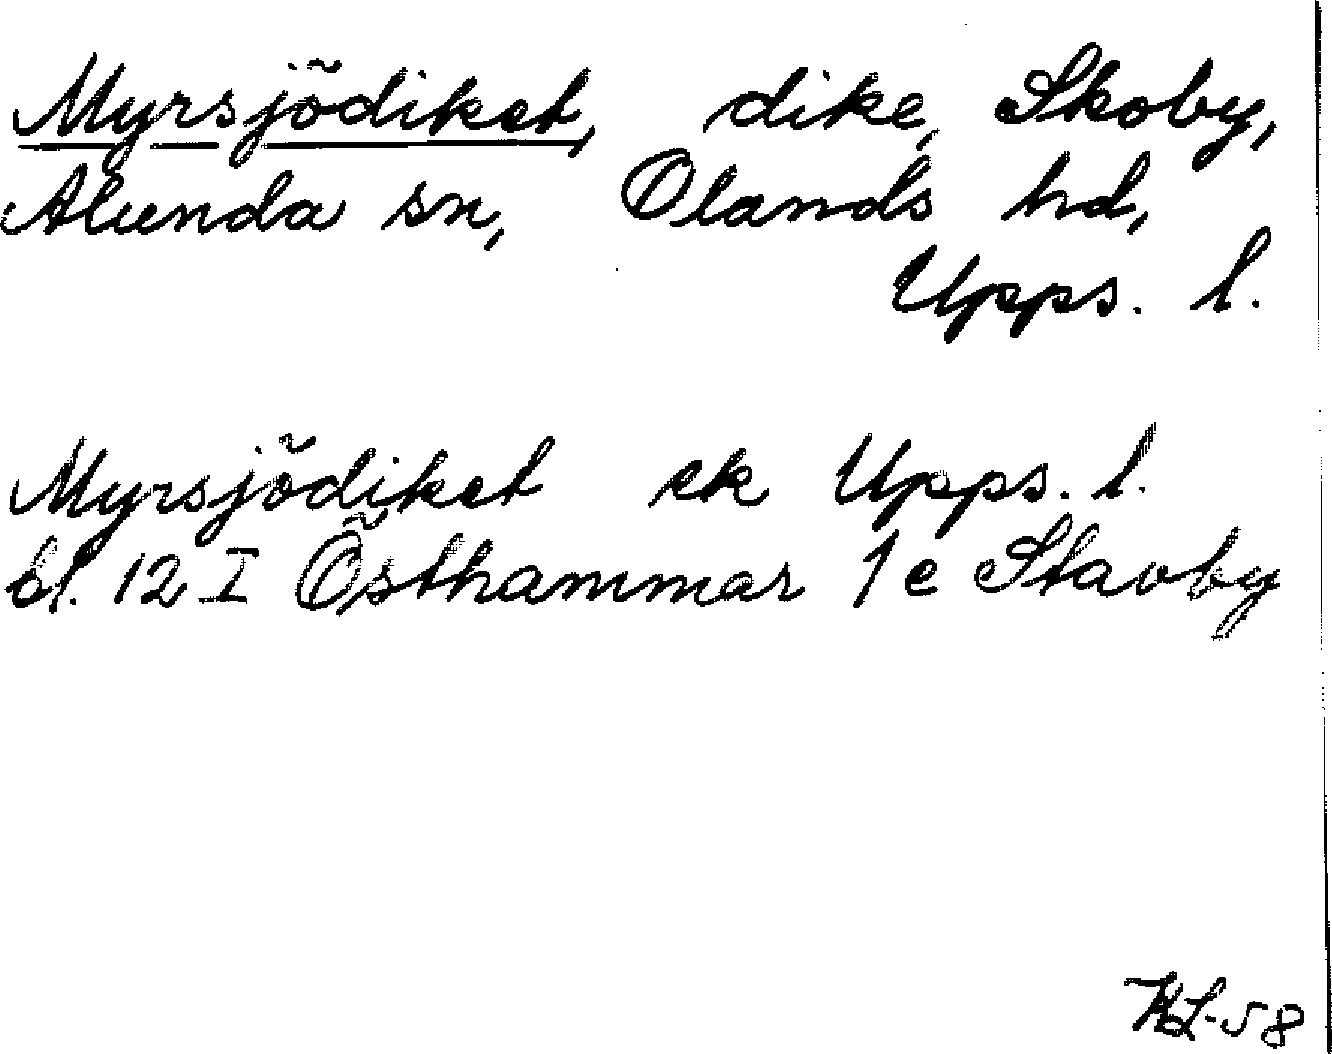 Myrsjödiket, dike, Skoby,
Alunda sn, Olands hd,
Upps. l.
Myrsjödiket ek Upps. l.
bl. 12 I Östhammar 1 e Stavby
KL-58